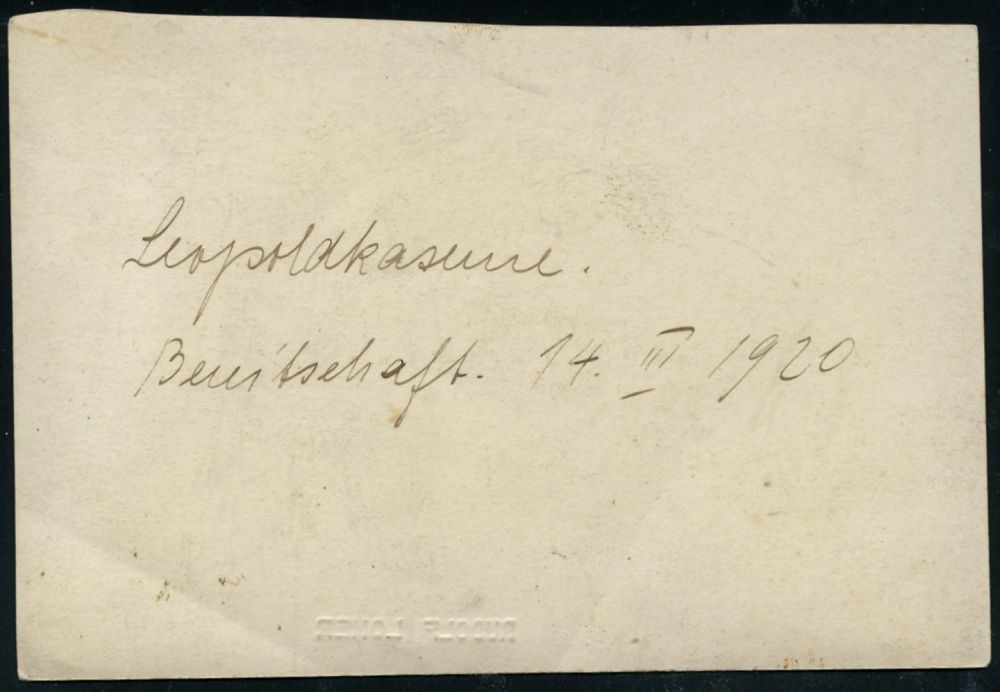 Leopoldkaserne.
Bereitschaft. 14. III 1920
RUDOLF